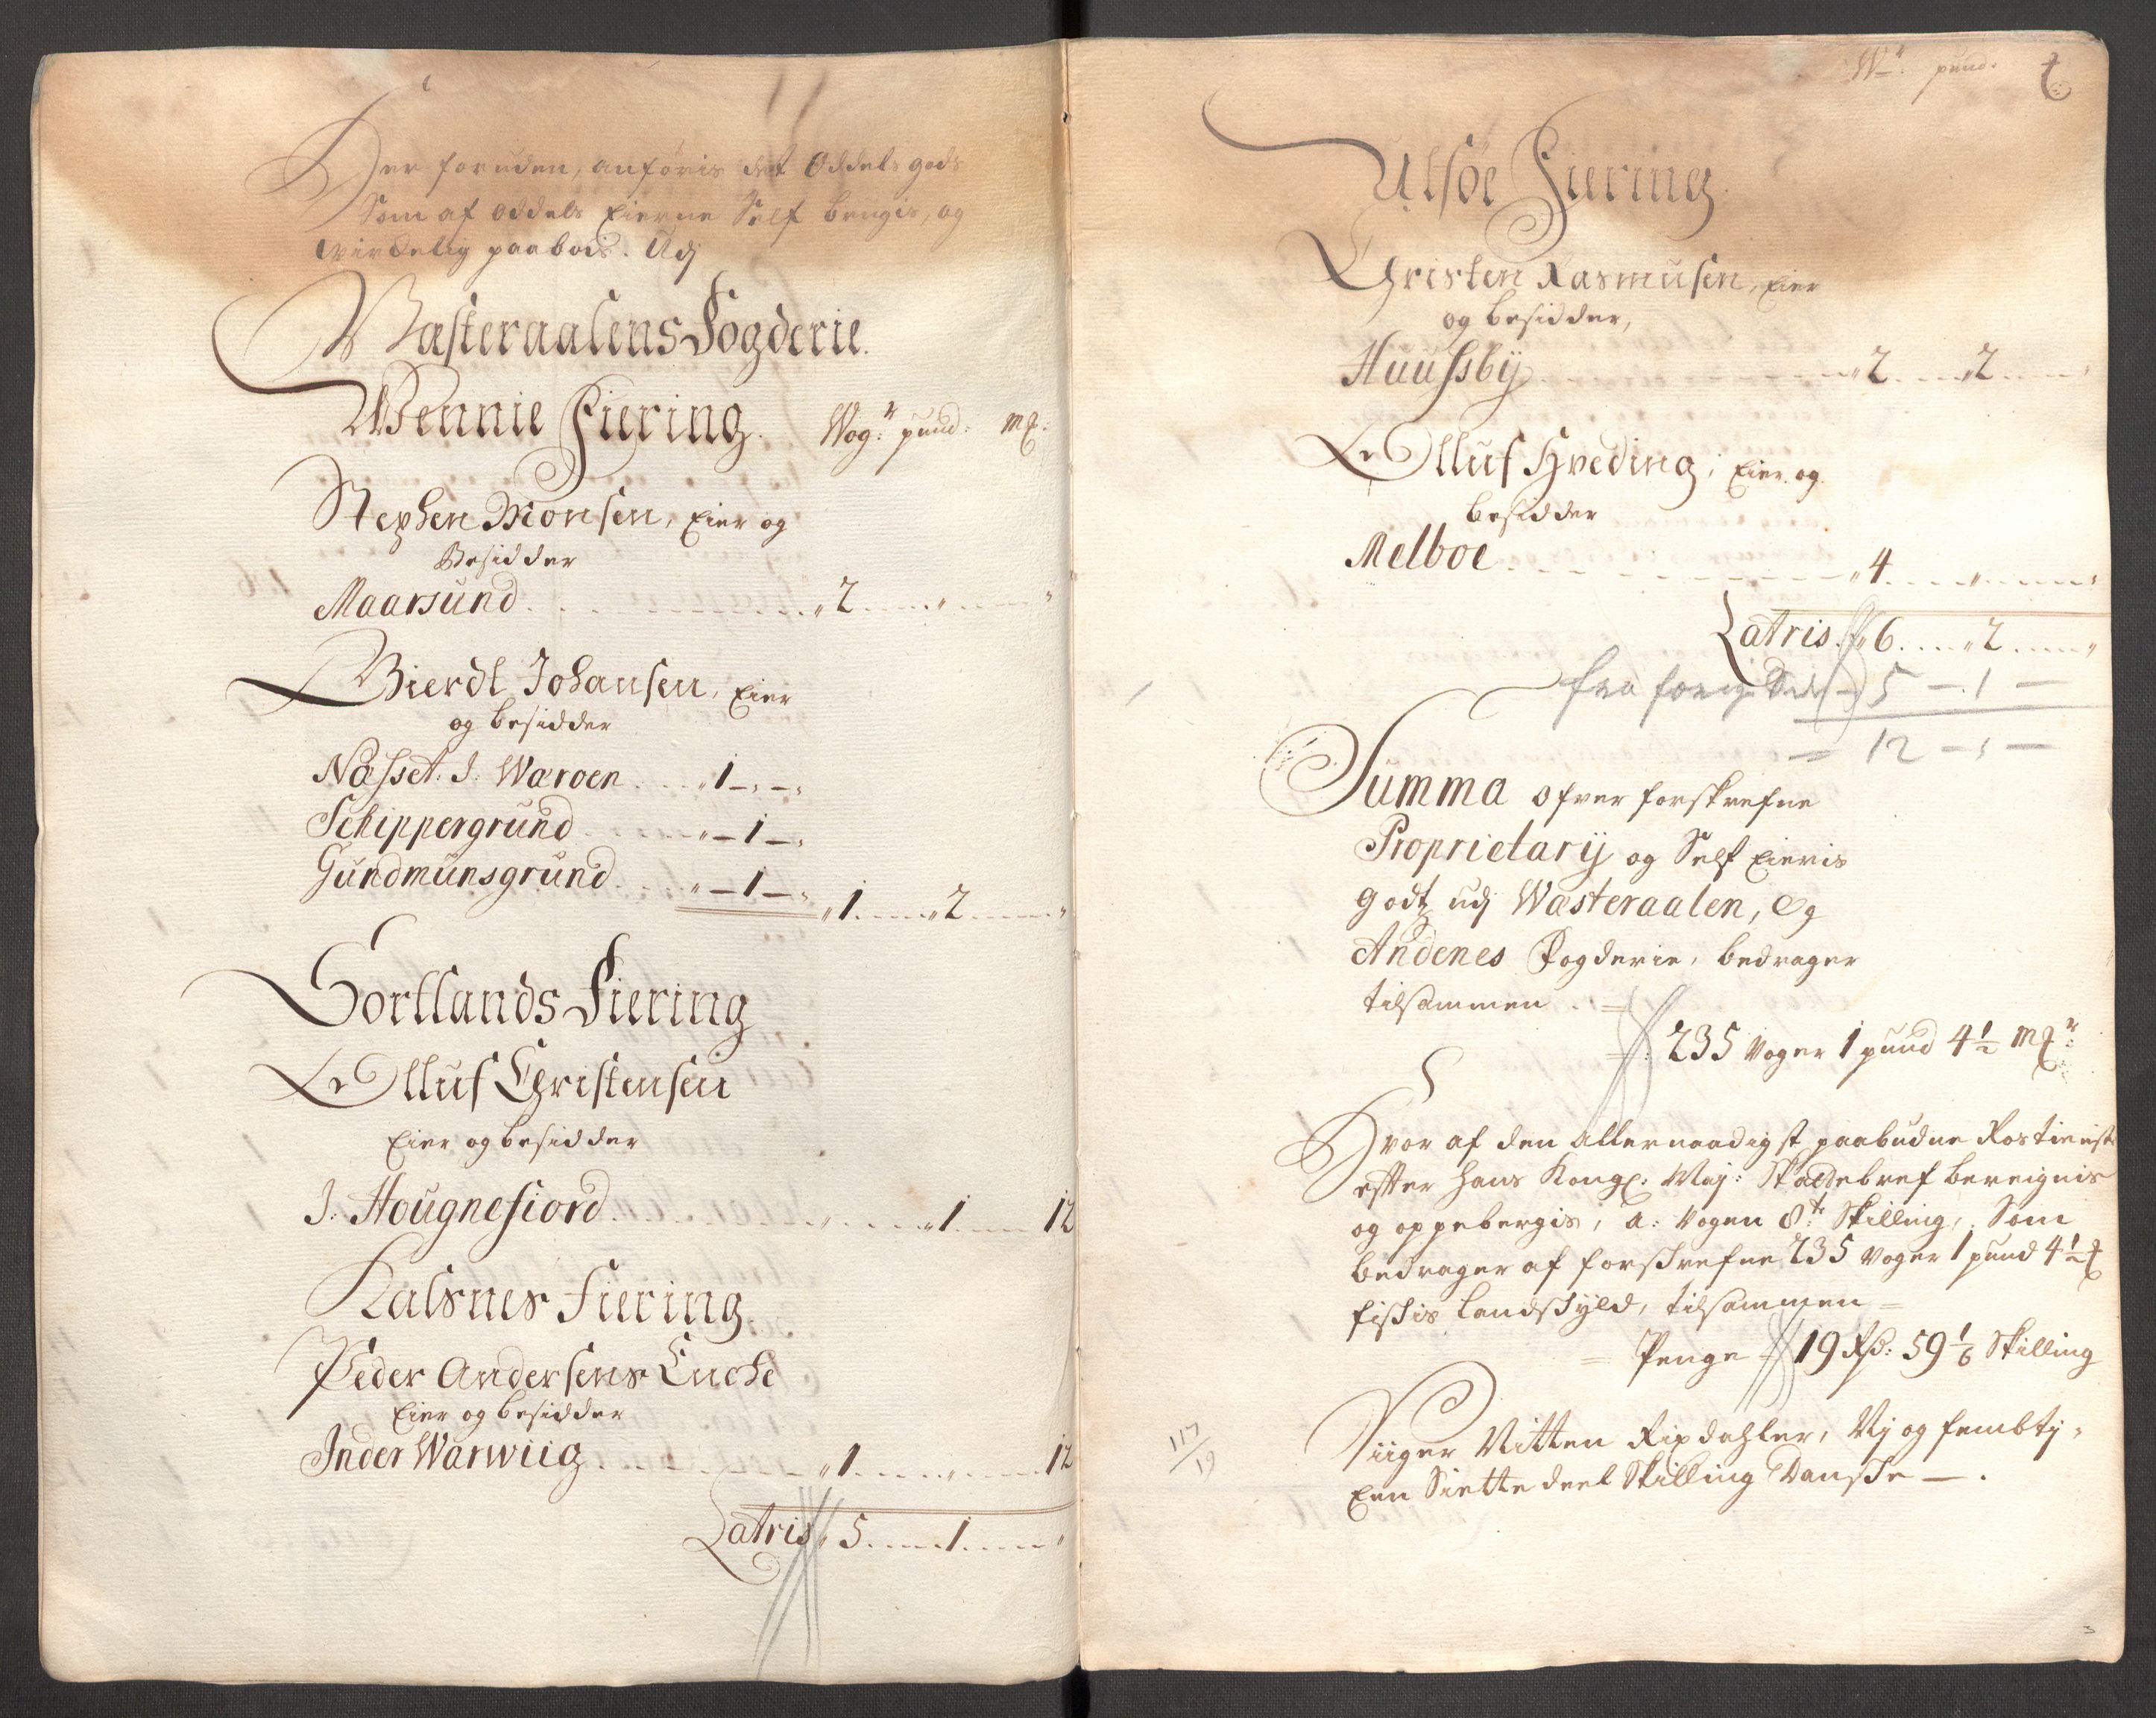 Her foruden, anføris det Oddels gods
Som af oddels Eierne Self brugis, og
virkelig paaboes. Udj
Wæsteraalens Fogderie.
Wennie Fiering. Wog:r pund: m&:
Stephen Monsen, Eier og
Besidder
Maarsund . . . . . „ 2 . . . „ . . . „
Bierdt Johansen, Eier
og besidder
Næsset. J. Wæroen . . . „ 1 – „ – „
Schippergrund . . . . „ – 1 – „
Gundmunsgrund . . . „ – 1 – „
„ 1 . . . „ 2 . . . „
Sortlands Fiering
Olluf Christensen
Eier og besidder
J: Hougnefiord . . . . „ . . . „ 1 . . . 12
Kalsnes Fiering
Peder Andersens Encke
Eier og besidder
Inder Warwiig . . . . „ 1 . . . „ . . . 12
Latris „ 5 . . . 1 . . . „
W:r pund.
Ulsøe Fiering.
Christen Rasmusen, Eier
og besidder,
Huussbÿ . . . . „ 2 . . . „ 2 . . . „
Olluf Hveding, Eier og
besidder
Melboe . . . . „ 4 . . . „ . . . „
Latris. „ 6 . . . „ 2 . . . „
fra forrige Side – 5 – 1 –
– 12 – „ –
Summa ofver forskrefne
Proprietarij og Self Eieris
godtz udj Wæsteraalen, Og
Andenes Fogderie, bedrager
tilsammen . =
235 Voger 1 pund 4½ m&r:
Hvor af den allernaadigst paabudne Rostieniste
efter hans Kongl: Maj: Skattebref bereignis
og oppebergis, à: Vogen 8te Skilling, Som
bedrager af forskrefne 235 Voger 1 pund 4½ &
fiskis Landskyld, tilsammen =
= Penge – 19 Rd: 59 1/6 Skilling
Siiger Nitten Rixdahler, Nj og fembtj,
Een Siette deel Skilling Danske – .
117
19